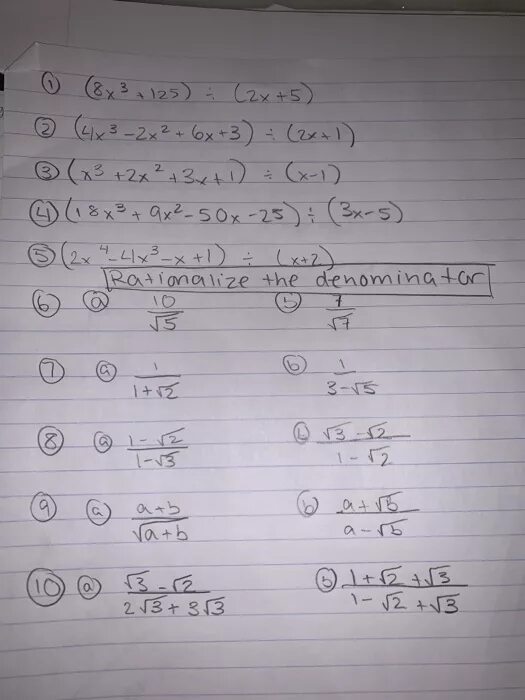 ① (8x³ + 125) ÷ (2x + 5)
② (4x³ - 2x² + 6x + 3) ÷ (2x + 1)
③ (x³ + 2x² + 3x + 1) ÷ (x - 1)
④ (18x³ + 9x² - 50x - 25) ÷ (3x - 5)
⑤ (2x⁴ - 4x³ - x + 1) ÷ (x + 2)
Rationalize the denominator
⑥ ⓐ 10/√5 ⓑ 7/√7
⑦ ⓐ 1/(1+√2) ⓑ 1/(3-√5)
⑧ ⓐ (1-√2)/(1-√3) ⓑ (√3-√2)/(1-√2)
⑨ ⓐ (a+b)/√(a+b) ⓑ (a+√b)/(a-√b)
⑩ ⓐ (√3-√2)/(2√3+3√3) ⓑ (1+√2+√3)/(1-√2+√3)